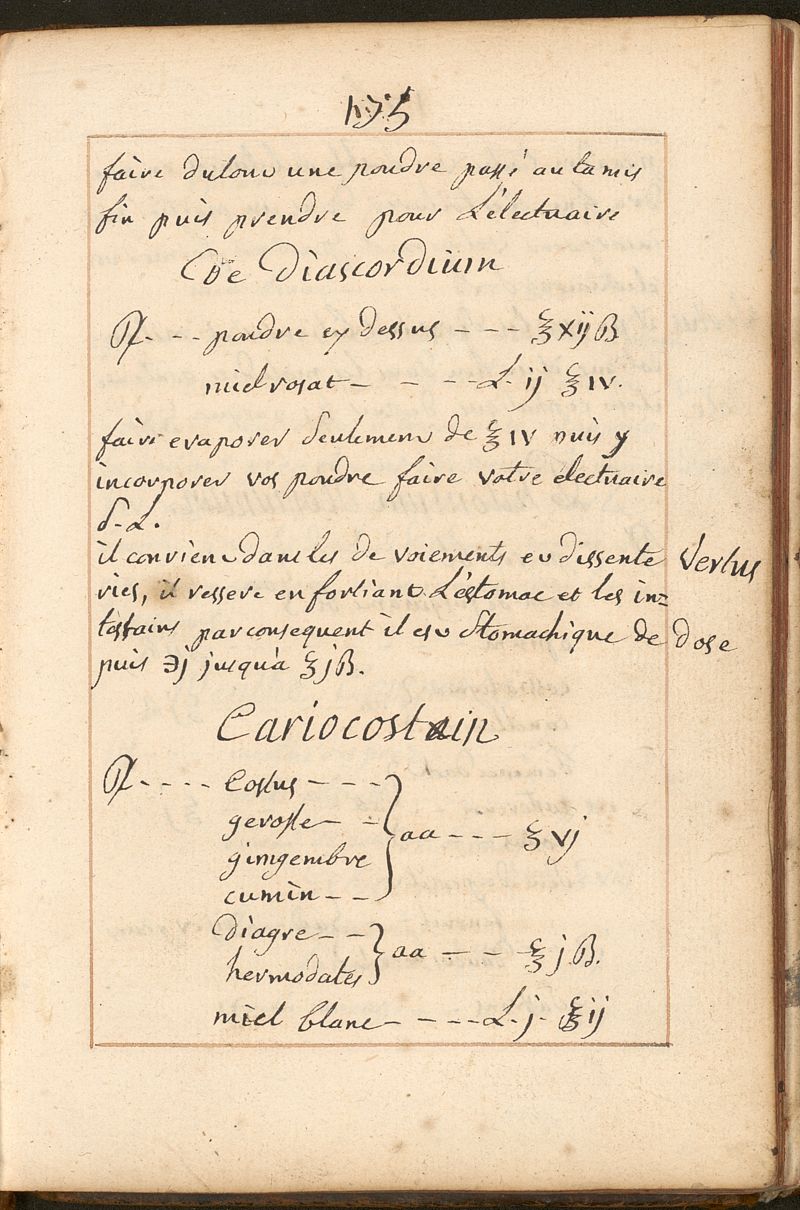 175
faire dutout une poudre passé autamis
fin puis prendre pour L'électuaire
De Diascordium
℞. - - poudre cy dessus - - - ℥xijß
miel rosat - - - - L. ij ℥iv.
faire evaporer seulement de ℥iv puis y
incorporer vos poudre faire votre électuaire
S.L.
il convient dans les de voiements et dissente Vertus
ries, il ressere en fortiant L'éstomac et les in=
testains parconsequent il est Stomachique de dose
puis ℈j jusqu'a ℥jß.
Cariocostain
℞ - - - - Costus - - - -
gerofle - -
gimgembre aa - - - ℥vj
cumin - -
Diagre - -
hermodates aa - - - ℥jß.
miel blanc - - - - L. j. ℥ij